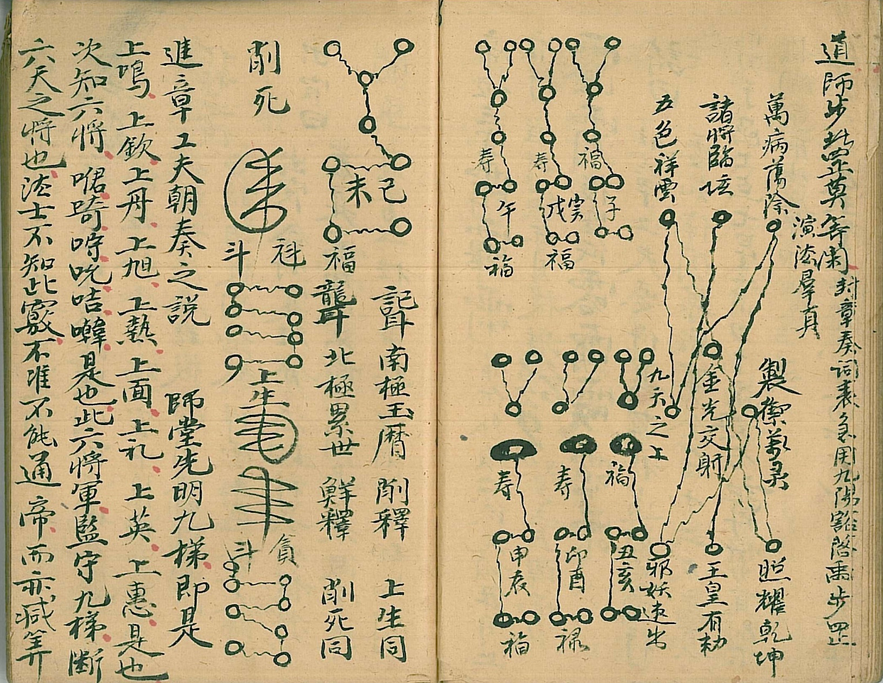 道師步罡奠等閑封章奏詞表急用九陽豁啓禹步罡
演法羣真
萬病蕩除
照耀乾坤
諸將臨垓
金光交射
玉皇有勅
五色祥雲
九天之上
邪妖速出
福
子
福
丑亥
寿
戌
福
寿
卯酉
禄
寿
午
福
寿
申辰
福
南極玉曆 削釋 上生同
己
未
福
北極累世 解釋 削死同
斗
上生
貪
削死
斗
進章工夫朝奏之説 師堂先明九梯即是
上鳴上欽上丹上旭上熱上面上礼上英上惠是也
次知六將 喏 是也此六將軍監守九梯斷
六天之將也法士不知此竅不准不能通帝而亦減筭